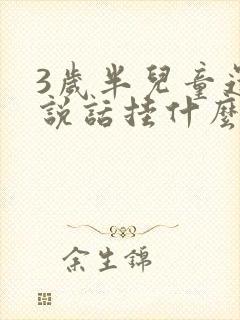 3歲半兒童還
說話挂什麼
余生錦